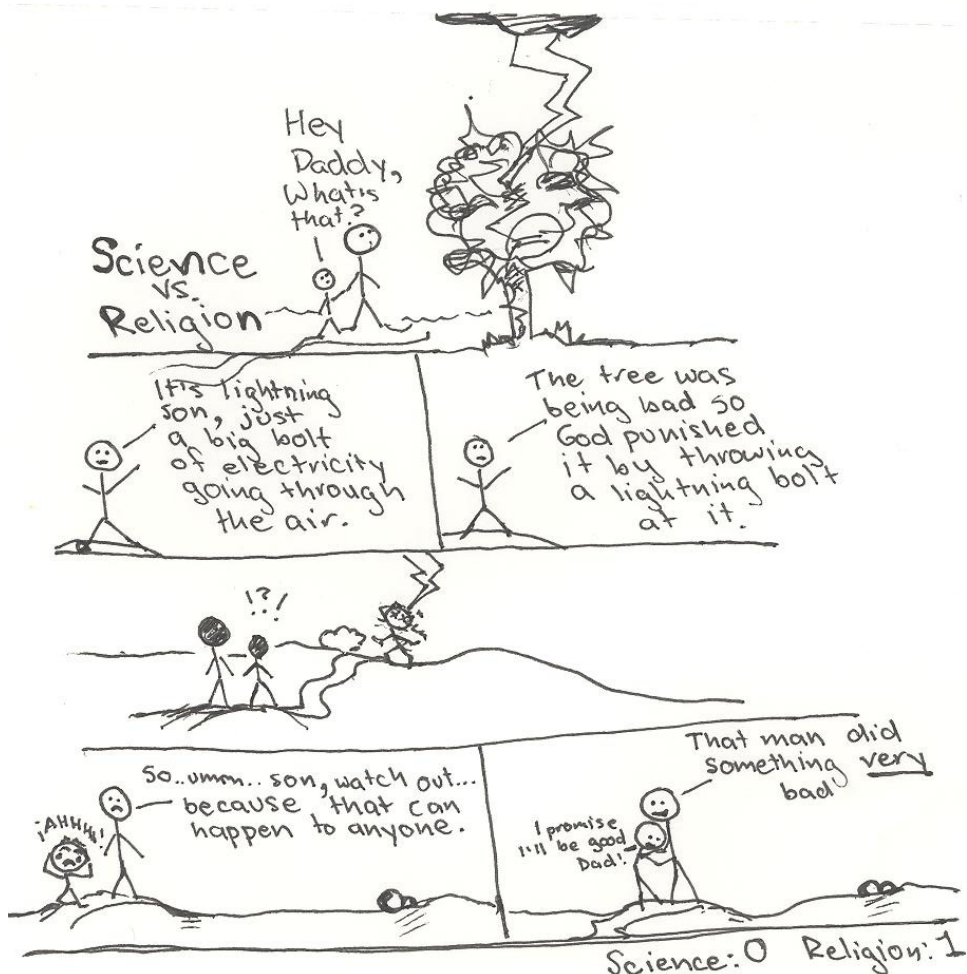 Hey
Daddy,
What's
that?
Science
vs.
Religion
It's lightning
son, just
a big bolt
of electricity
going through
the air.
The tree was
being bad so
God punished
it by throwing
a lightning bolt
at it.
!?!
So..umm.. son, watch out...
because that can
happen to anyone.
¡AHHHH!
That man did
something very
bad
I promise
I'll be good
Dad!
Science: 0 Religion: 1